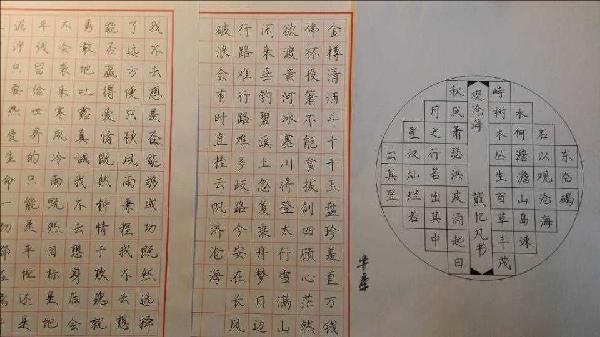 我不去想是否能够成功既然选择
了远方便只顾风雨兼程我不去想
能否赢得爱情既然钟情于玫瑰就
勇敢地吐露真诚我不去想身后会
不会袭来寒风冷雨既然目标是地
平线留给世界的只能是平坦还是
泥泞只要热爱生命一切都在意
金樽清酒斗十千玉盘珍羞直万钱
停杯投箸不能食拔剑四顾心茫然
欲渡黄河冰塞川将登太行雪满山
闲来垂钓碧溪上忽复乘舟梦日边
行路难行路难多歧路今安在长风
破浪会有时直挂云帆济沧海
东临碣
石以观沧海
水何澹澹山岛竦
峙树木丛生百草丰茂
观沧海
秋风萧瑟洪波涌起日
月之行若出其中
星汉灿烂若